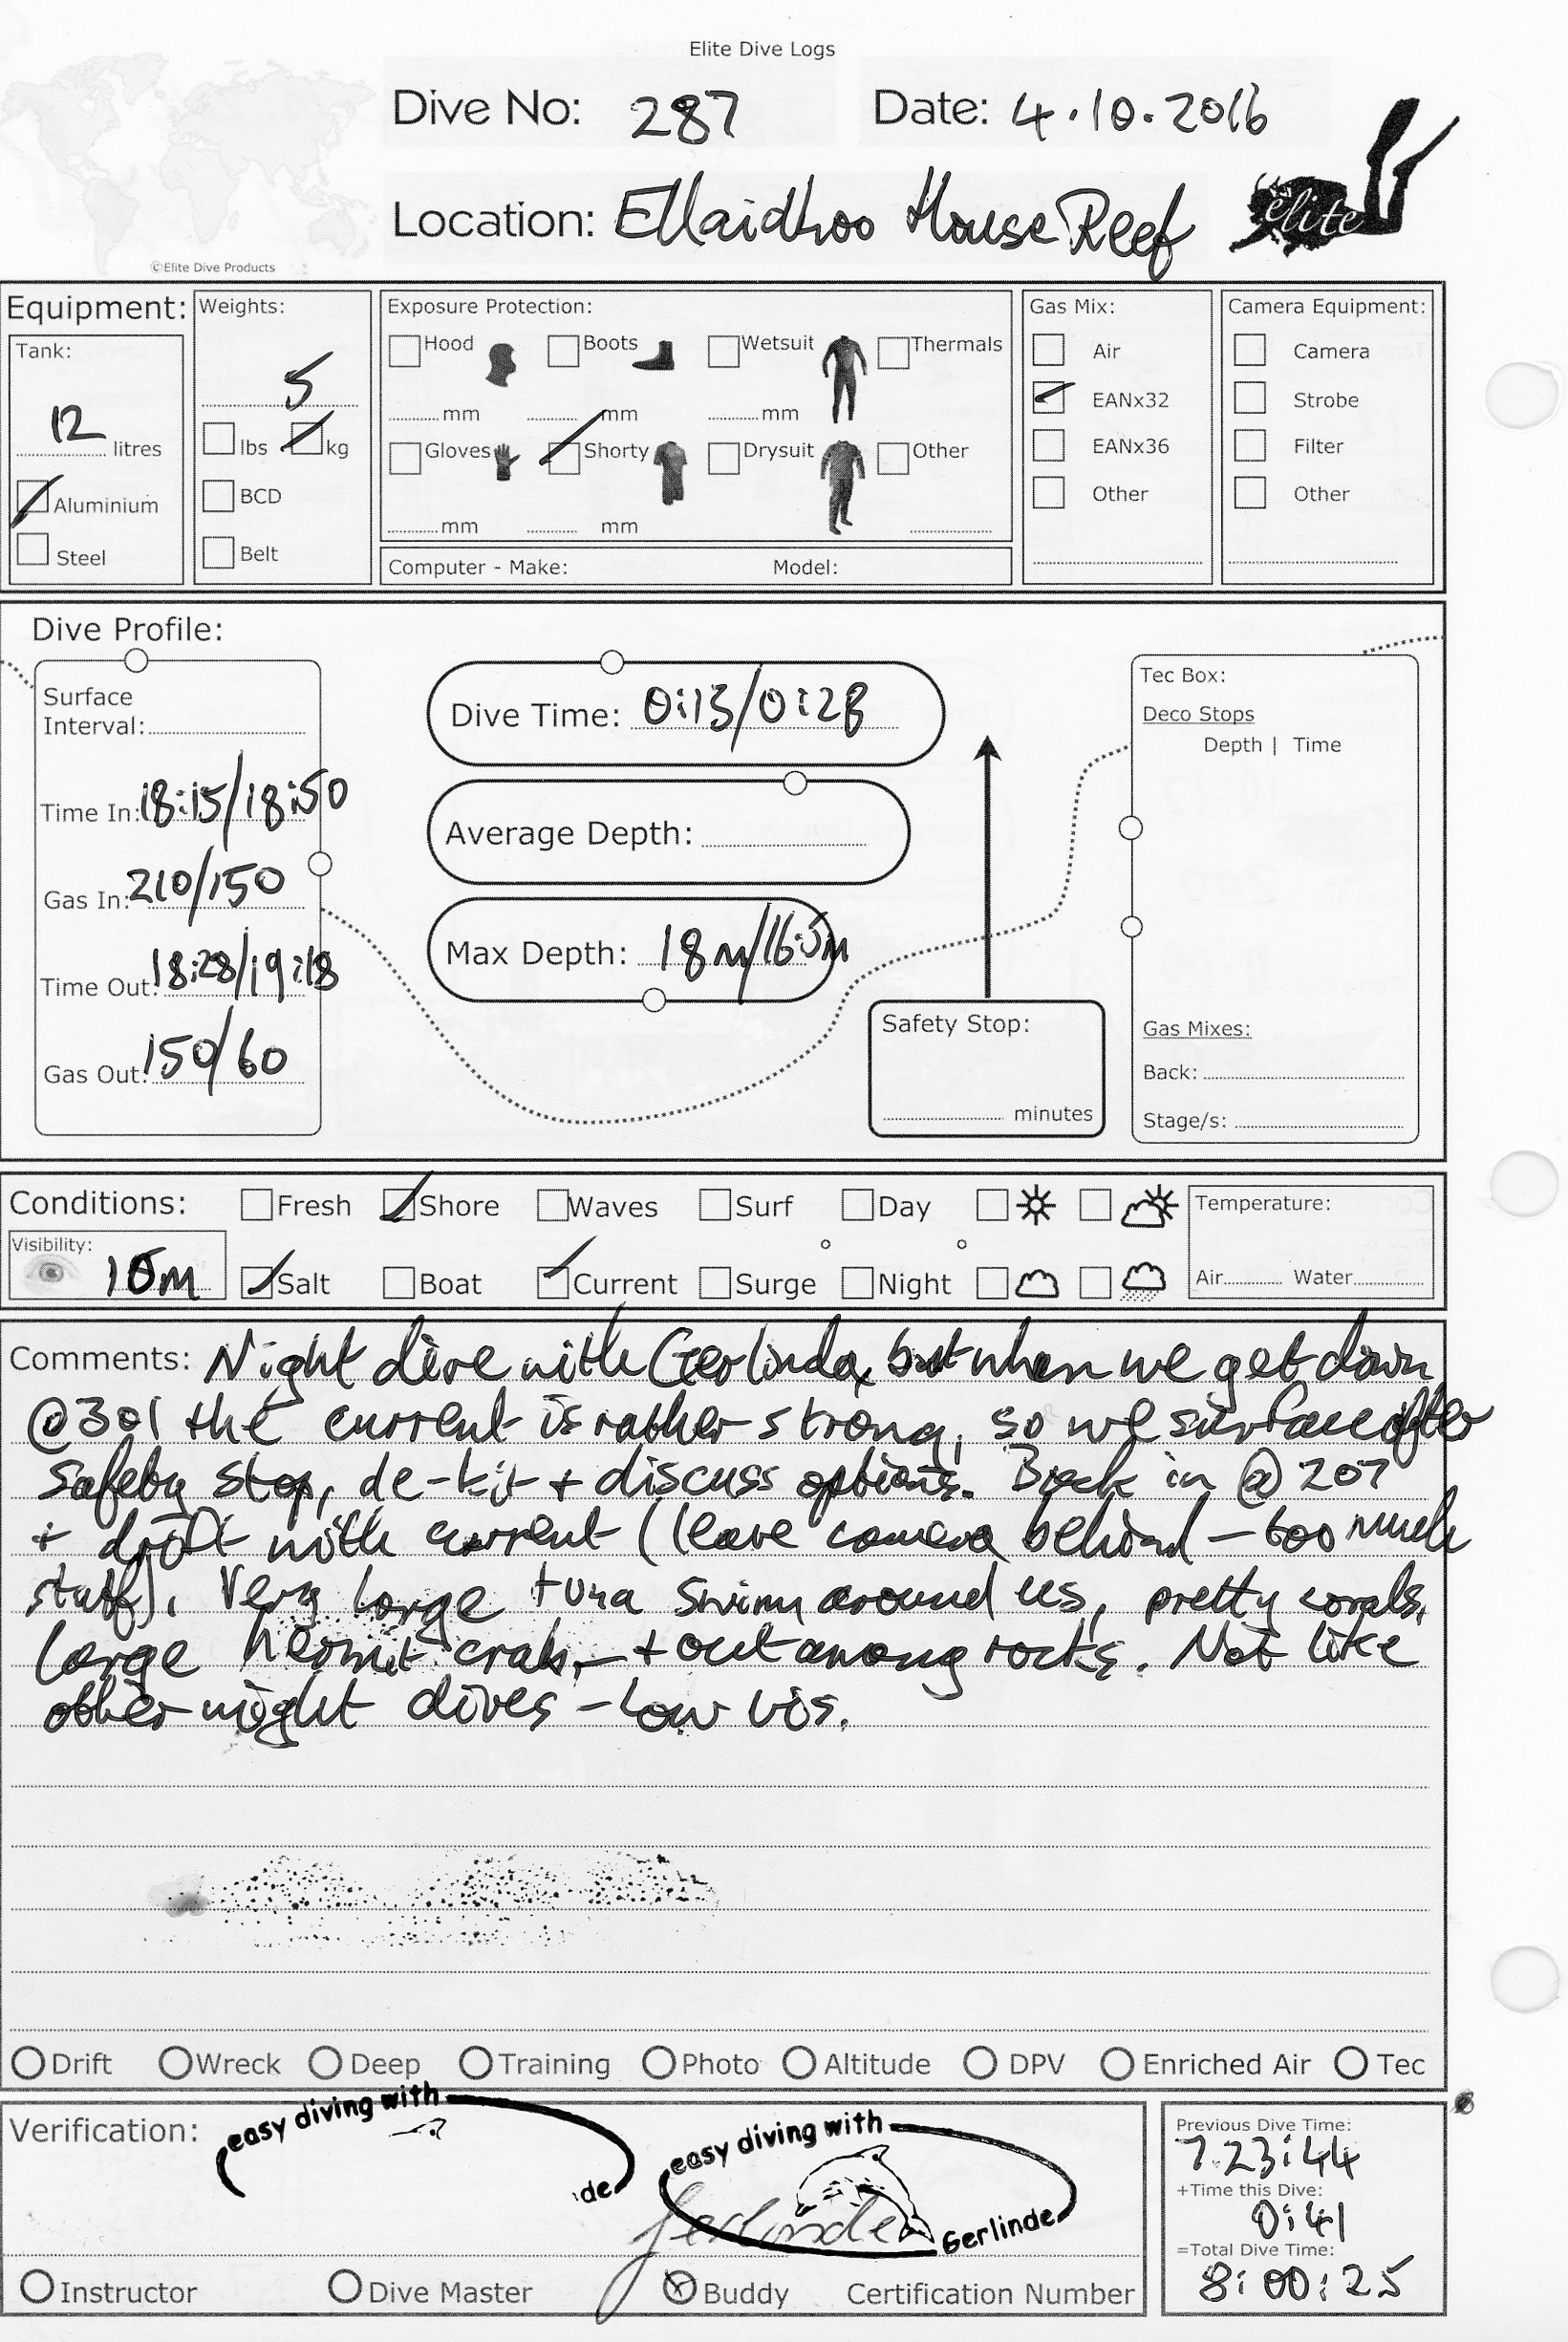 Elite Dive Logs
Dive No: 287 Date: 4.10.2016
Location: Ellaidhoo House Reef
elite
©Elite Dive Products
Equipment: Weights: Exposure Protection: Gas Mix: Camera Equipment:
Tank: Hood Boots Wetsuit Thermals Air Camera
5 mm mm mm EANx32 Strobe
12 litres lbs kg Gloves Shorty Drysuit Other EANx36 Filter
Aluminium BCD Other Other
mm mm
Steel Belt Computer - Make: Model:
Dive Profile:
Surface
Interval:
Time In: 18:15/18:50
Gas In: 210/150
Time Out: 18:28/19:18
Gas Out: 150/60
Dive Time: 0:13/0:28
Average Depth:
Max Depth: 18m/16.5m
Safety Stop:
minutes
Tec Box:
Deco Stops
Depth | Time
Gas Mixes:
Back:
Stage/s:
Conditions: Fresh Shore Waves Surf Day Temperature:
Visibility: 10m Salt Boat Current Surge Night Air Water
Comments: Night dive with Gerlinda, but when we get down
@301 the current is rather strong, so we surface after
safety stop, de-kit + discuss options. Back in @ 207
+ drift with current (leave camera behind - too much
stuff). Very large tuna swim around us, pretty corals,
large hermit crab - + out among rocks. Not like
other night dives - low vis.
Drift Wreck Deep Training Photo Altitude DPV Enriched Air Tec
Verification:
easy diving with
de
easy diving with
Gerlinde
Gerlinde
Instructor Dive Master Buddy Certification Number
Previous Dive Time:
7.23:44
+Time this Dive:
0:41
=Total Dive Time:
8:00:25